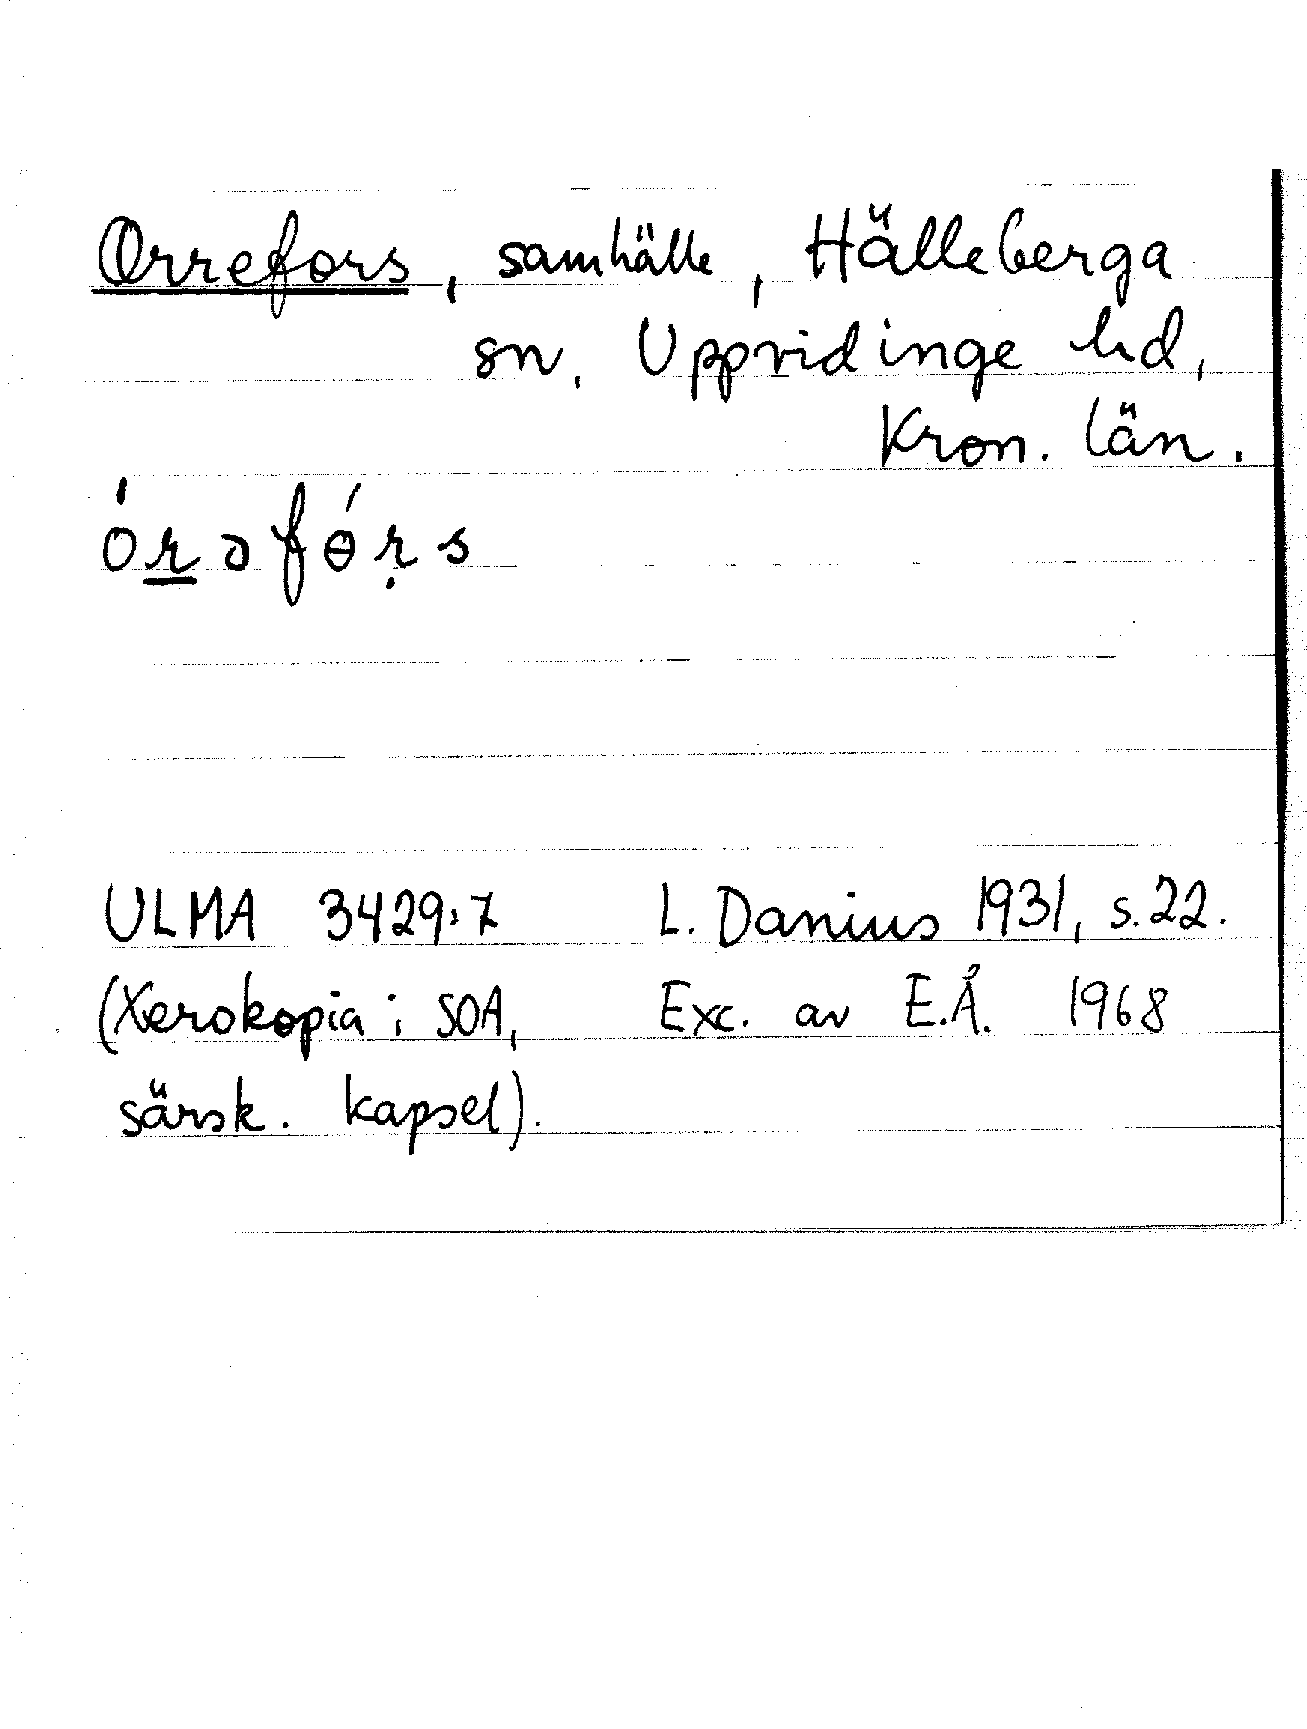 Orrefors, samhälle, Hälleberga
sn, Uppvidinge hd,
Kron. län.
óṟəfɵ́ṛs
ULMA 3429:7 L. Danius 1931, s.22.
(Xerokopia i SOA, Exc. av E.Å. 1968
särsk. kapsel).